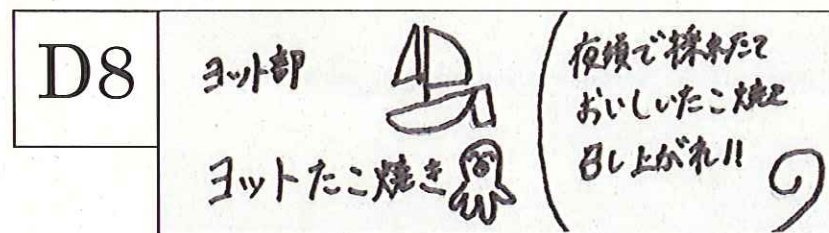 D8
ヨット部
ヨットたこ焼き
夜須で採れたて
おいしいたこ焼き
召し上がれ!!